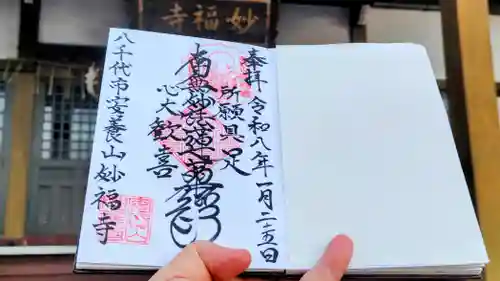 寺福妙
奉拝
令和八年一月二十五日
所願具足
南無妙法蓮華経
心大歓喜
八千代市安養山妙福寺